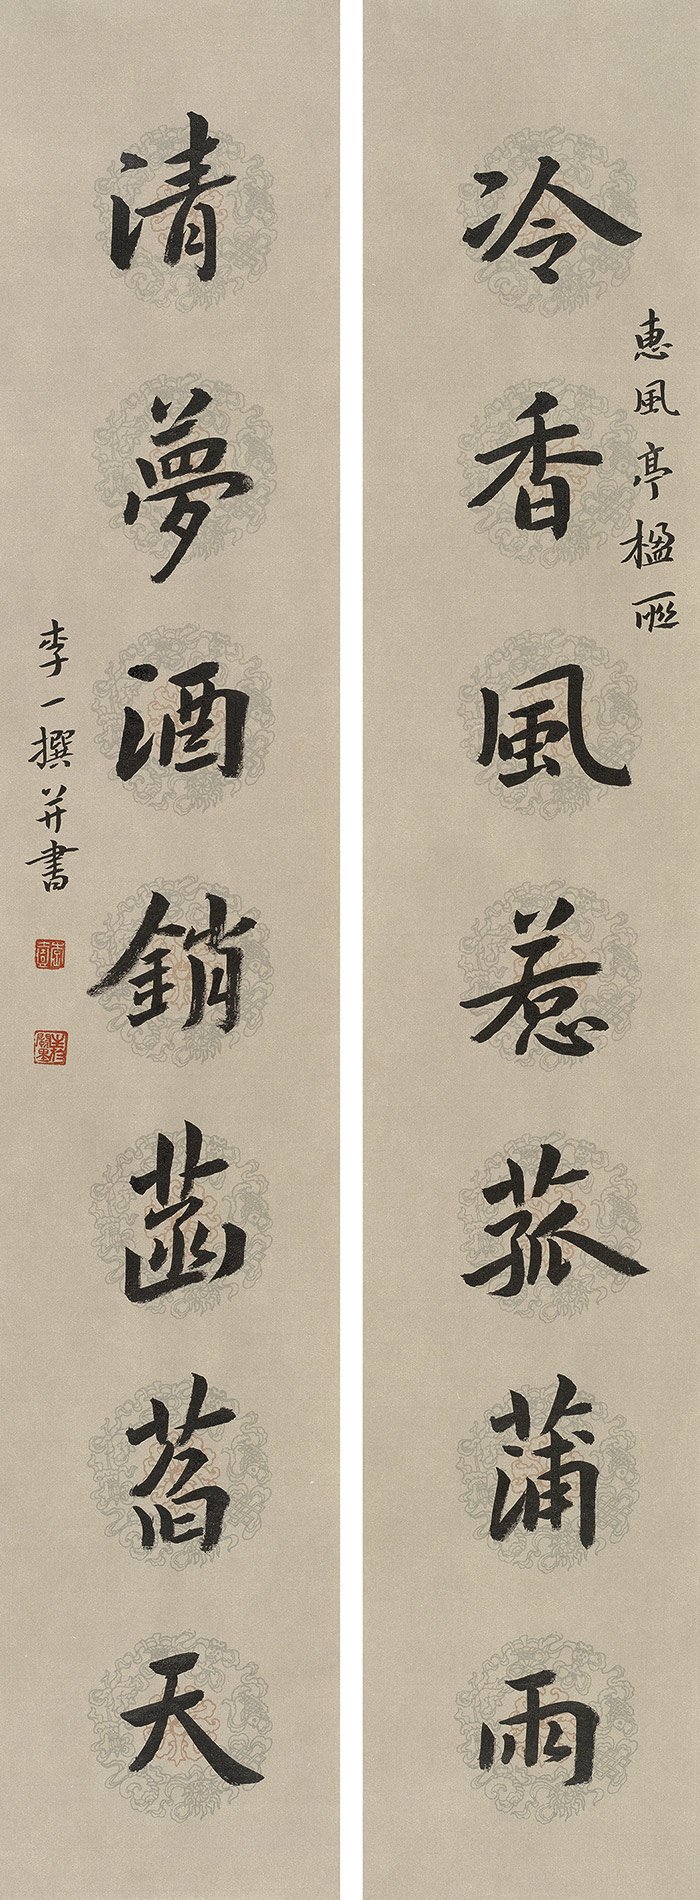 惠風亭楹聯
冷香風惹菰蒲雨
清夢酒銷菡萏天
李一撰并書